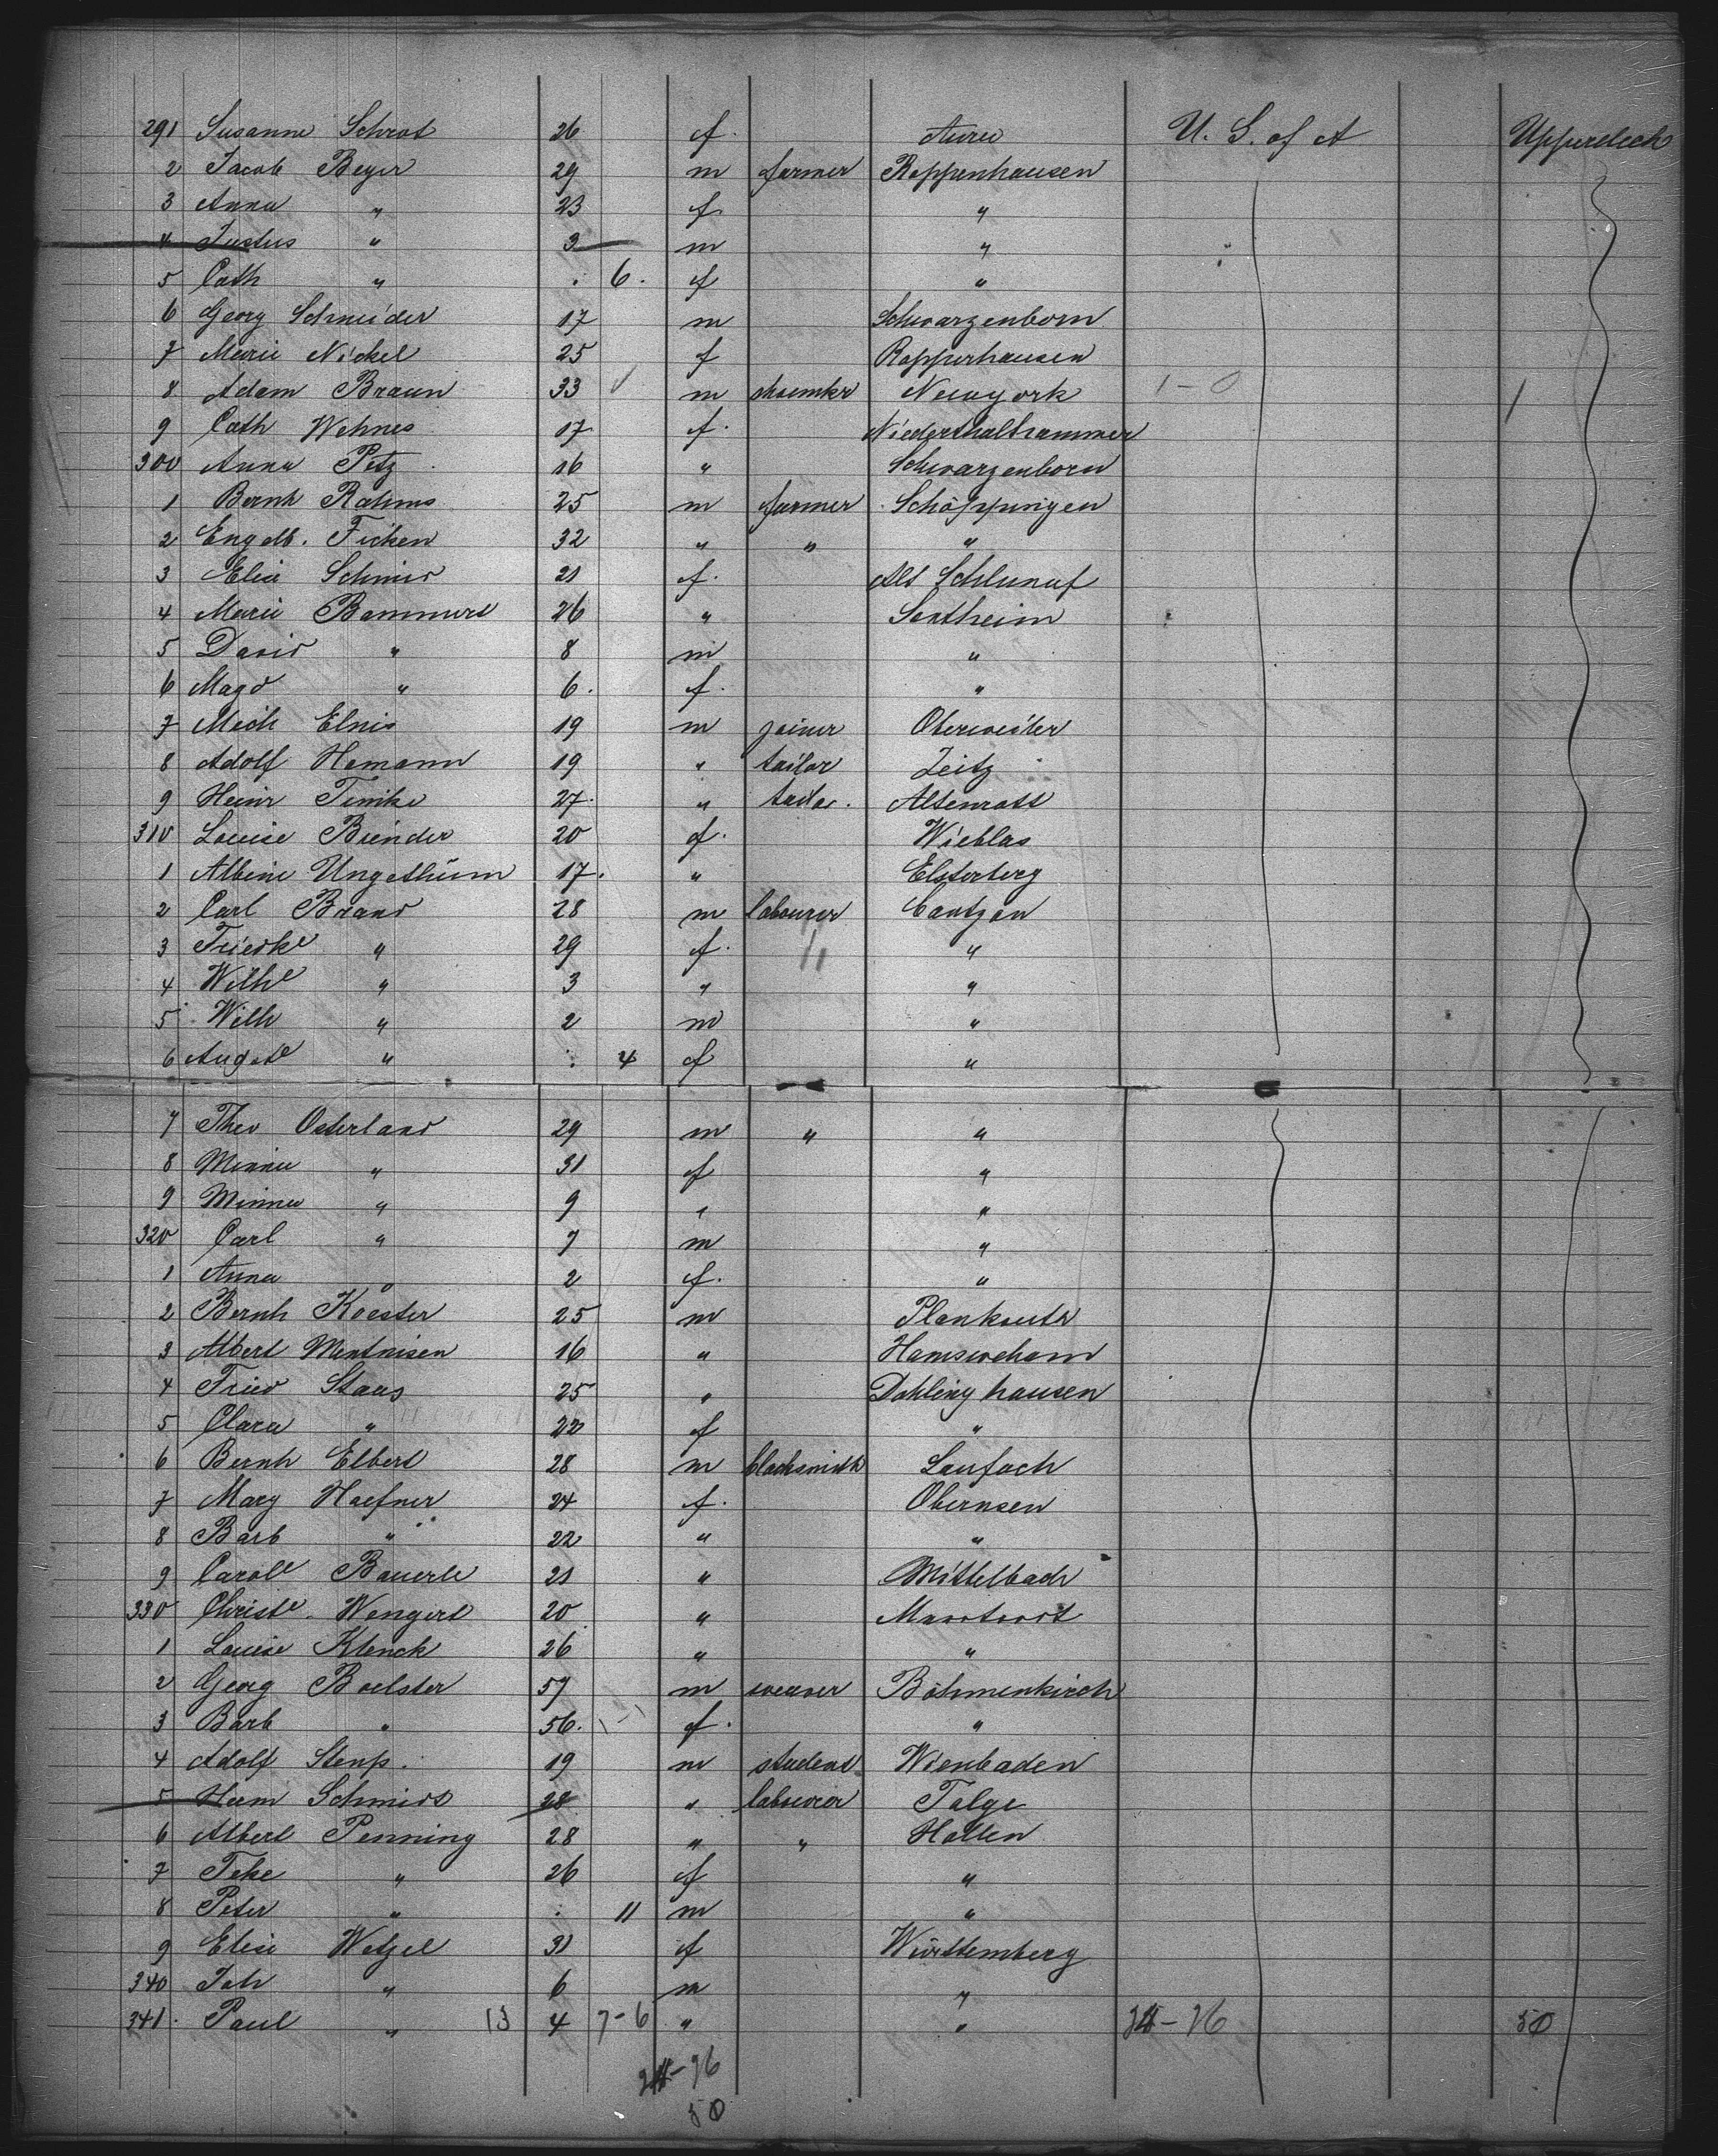 291 Susanne Schrot 26 f. Aurea U. S. of A Upperdeck
2 Jacob Beyer 29 m farmer Roppenhausen
3 Anna " 23 f. "
4 Justus " 3 m "
5 Cath " . 6. f "
6 Georg Schneider 17 m Schwarzenborn
7 Marie Nickel 25 f Ropperhausen
8 Adam Braun 33 m shoemkr Newyork 1-0 1
9 Cath Wehnes 17 f. Niederthalhammer
300 Anna Petz 16 " Schwarzenborn
1 Bernh Rahms 25 m farmer Schöppingen
2 Engelb. Ficken 32 " " "
3 Elise Schmid 21 f. Alt
4 Marie Bammert 26 " Sontheim
5 David " 8 m "
6 Magd " 6. f. "
7 Mich 19 m joiner Oberweiler
8 Adolf Hamann 19 " tailor Zeitz
9 Heinr Timike 27. " tailor. Altenrott
310 Louise Brinder 20 f. Wieblas
1 Albine Ungethüm 17. " Elsterberg
2 Carl Brand 28 m labourer Cantzen
3 Friedke " 29 f. "
4 Wilhe " 3 " "
5 Wilh " 2 m "
6 Auguste " . 4 f "
7 Theo Osterland 29 m " "
8 Minna " 31 f "
9 Minna " 9 " "
320 Carl " 7 m "
1 Anna " 2 f. "
2 Bernh Koester 25 m
3 Albert 16 "
4 Fried Staas 25 " Dahlinghausen
5 Clara " 22 f "
6 Bernh Elbert 28 m blacksmith Laufach
7 Marg Haefner 24 f. Obernsen
8 Barb " 22 " "
9 Carole Bauerle 21 " Mittelbach
330 Christe Wengert 20 "
1 Louise Klenck 26 " "
2 Georg Boelster 57 m weaver Böhmenkirch
3 Barb " 56. 1-1 f. "
4 Adolf 19 m student Wienbaden
5 Herm Schmidt 28 " labourer Talge
6 Albert Penning 28 " " Hatten
7 Teke " 26 f "
8 Peter " . 11 m "
9 Elise Wetzel 31 f Württemberg
340 Joh " 6 m "
341. Paul " 13 4 7-6 " " 24-26 50
24-26
50